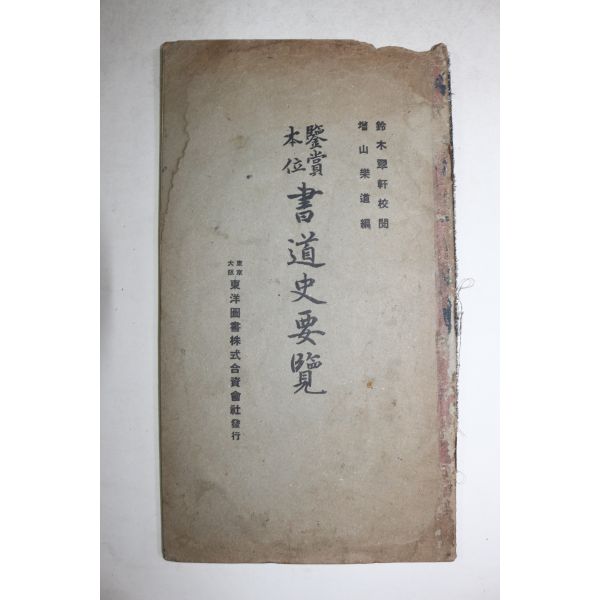 鈴木翠軒校閱
增山樂道編
鑒賞本位
書道史要覽
東京
大阪
東洋圖書株式合資會社發行